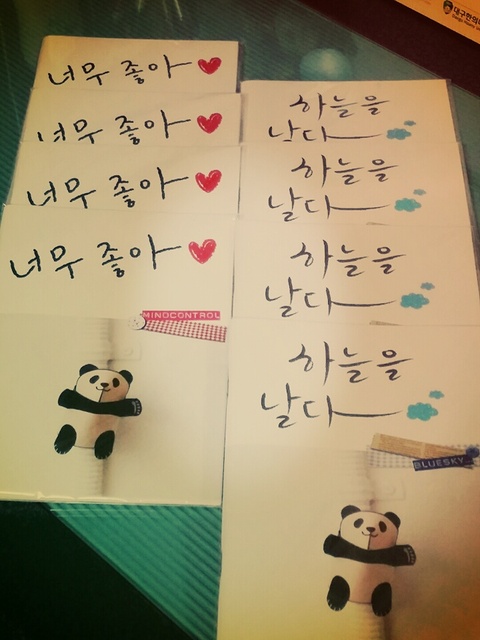 너무 좋아
너무 좋아
너무 좋아
너무 좋아
MINDCONTROL
하늘을
날다
하늘을
날다
하늘을
날다
하늘을
날다
BLUESKY